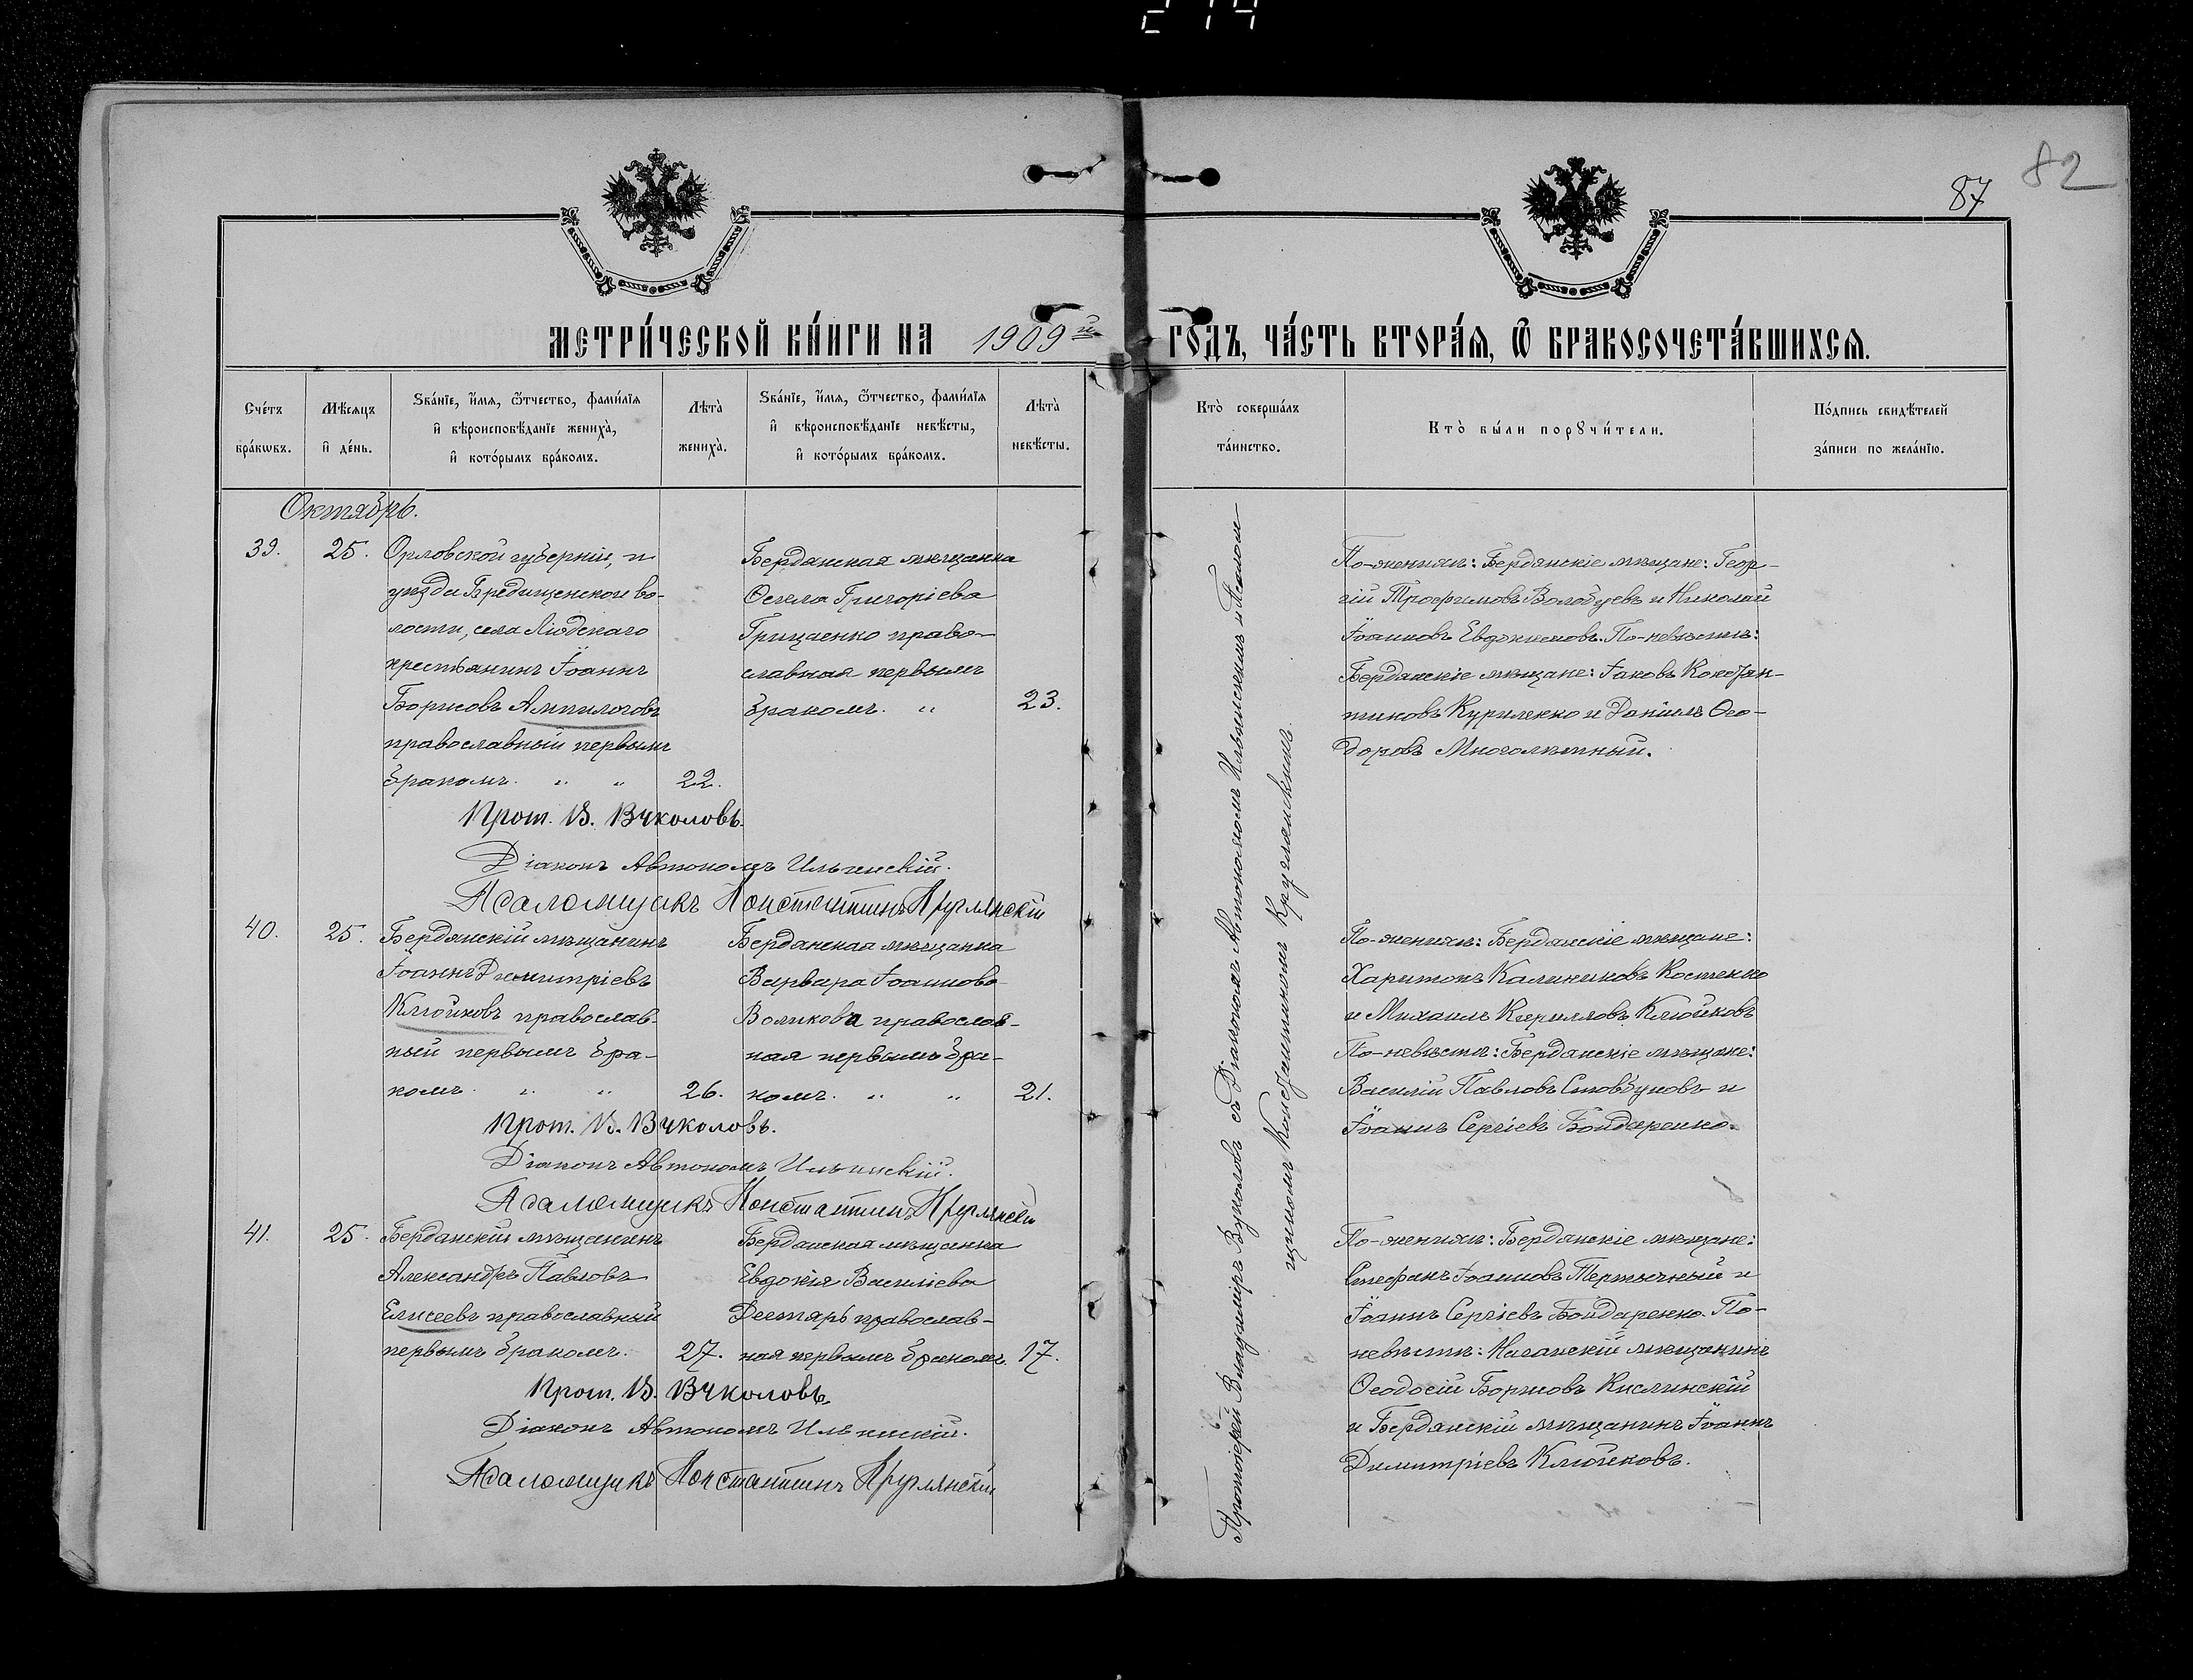 82
87
МЕТРИ́ЧЕСКОЙ КНИ́ГИ НА 1909й ГОДЪ, ЧА́СТЬ ВТОРА́Я, Ѽ БРАКОСОЧЕТА́ВШИХСЯ.
Сче́тъ бра́кѡвъ.
Мѣ́сѧцъ и҆ де́нь.
Ѕва́нїе, и҆́мѧ, ѻ҆́тчество, фами́лїѧ
и҆ вѣроисповѣ́данїе жениха̀,
и҆ кото́рымъ бра́комъ.
Лѣта̀ жениха̀.
Ѕва́нїе, и҆́мѧ, ѻ҆́тчество, фами́лїѧ
и҆ вѣроисповѣ́данїе невѣ́сты,
и҆ кото́рымъ бра́комъ.
Лѣта̀ невѣ́сты.
Кто̀ соверша́лъ та́инство.
Кто̀ бы́ли порꙋчи́тели.
По́дпись свидѣ́телей за́писи по жела́нїю.
Октябрь.
39.
25.
Орловской губерніи, и
уѣзда Бредищенской во-
лости, села Людскаго
крестьянинъ Іоаннъ
Борисовъ Ампилоговъ
православный первымъ
бракомъ. " "
22.
Бердянская мѣщанка
Ѳекла Григоріева
Грицаенко право-
славная первымъ
бракомъ. "
23.
По-женихѣ: Бердянскіе мѣщане: Геор-
гій Трофимовъ Волобуевъ и Николай
Іоанновъ Евдокимовъ. По-невѣстѣ:
Бердянскіе мѣщане: Іаковъ Констан-
тиновъ Куриленко и Даніилъ Ѳео-
доровъ Многолѣтный.
Прот. В. Вуколовъ.
Діаконъ Автономъ Ильинскій.
Псаломщикъ Константинъ Круглянскій
40.
25.
Бердянскій мѣщанинъ
Іоаннъ Димитріевъ
Клюйковъ православ-
ный первымъ бра-
комъ. " "
26.
Бердянская мѣщанка
Варвара Іоаннова
Воликова православ-
ная первымъ бра-
комъ. " "
21.
По-женихѣ: Бердянскіе мѣщане:
Харитонъ Калиниковъ Костенко
и Михаилъ Кирилловъ Клюйковъ
По-невѣстѣ: Бердянскіе мѣщане:
Василій Павловъ Столбуновъ и
Іоаннъ Сергіевъ Бондаренко.
Прот. В. Вуколовъ.
Діаконъ Автономъ Ильинскій.
Псаломщикъ Константинъ Круглянскій
41.
25.
Бердянскій мѣщанинъ
Александръ Павловъ
Елисеевъ православный
первымъ бракомъ.
27.
Бердянская мѣщанка
Евдокія Василіева
Дегтярь православ-
ная первымъ бракомъ.
17.
По-женихѣ: Бердянскіе мѣщане:
Стефанъ Іоанновъ Тертычный и
Іоаннъ Сергіевъ Бондаренко. По-
невѣстѣ: Ногайскій мѣщанинъ
Ѳеодосій Борисовъ Кислинскій
и Бердянскій мѣщанинъ Іоаннъ
Димитріевъ Клюйковъ.
Прот. В. Вуколовъ.
Діаконъ Автономъ Ильинскій.
Псаломщикъ Константинъ Круглянскій
Протоіерей Владиміръ Вуколовъ съ Діакономъ Автономомъ Ильинскимъ и Псалом-
щикомъ Константиномъ Круглянскимъ.